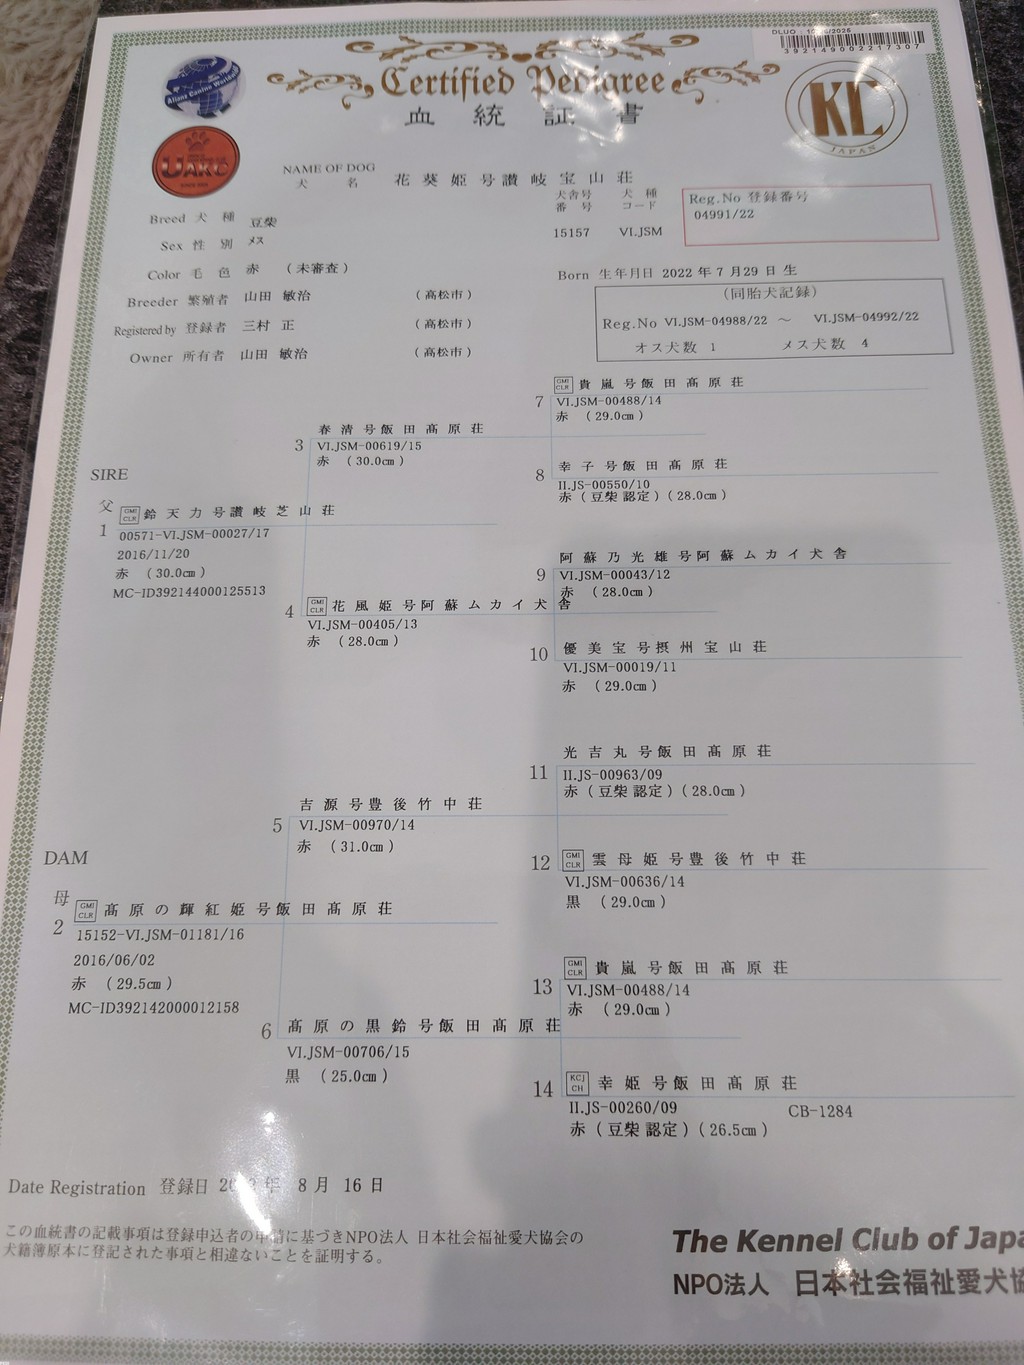 392149002217307
Certified Pedigree
血統証書
Alianz Canine Worldwide
UAKC
KC
JAPAN
NAME OF DOG
犬名 花葵姫号讃岐宝山荘
犬舎号番号 15157
犬種コード VI.JSM
Reg.No 登録番号
04991/22
Breed 犬種 豆柴
Sex 性別 メス
Color 毛色 赤 (未審査)
Breeder 繁殖者 山田 敏治 (高松市)
Registered by 登録者 三村 正 (高松市)
Owner 所有者 山田 敏治 (高松市)
Born 生年月日 2022年7月29日生
(同胎犬記録)
Reg.No VI.JSM-04988/22 ～ VI.JSM-04992/22
オス犬数 1 メス犬数 4
SIRE
父
1 GMI CLR 鈴天力号讃岐芝山荘
00571-VI.JSM-00027/17
2016/11/20
赤 (30.0cm)
MC-ID392144000125513
3 春清号飯田髙原荘
VI.JSM-00619/15
赤 (30.0cm)
4 GMI CLR 花風姫号阿蘇ムカイ犬舎
VI.JSM-00405/13
赤 (28.0cm)
7 GMI CLR 貴嵐号飯田髙原荘
VI.JSM-00488/14
赤 (29.0cm)
8 幸子号飯田髙原荘
II.JS-00550/10
赤(豆柴認定)(28.0cm)
9 阿蘇乃光雄号阿蘇ムカイ犬舎
VI.JSM-00043/12
赤 (28.0cm)
10 優美宝号摂州宝山荘
VI.JSM-00019/11
赤 (29.0cm)
DAM
母
2 GMI CLR 髙原の輝紅姫号飯田髙原荘
15152-VI.JSM-01181/16
2016/06/02
赤 (29.5cm)
MC-ID392142000012158
5 吉源号豊後竹中荘
VI.JSM-00970/14
赤 (31.0cm)
6 髙原の黒鈴号飯田髙原荘
VI.JSM-00706/15
黒 (25.0cm)
11 光吉丸号飯田髙原荘
II.JS-00963/09
赤(豆柴認定)(28.0cm)
12 GMI CLR 雲母姫号豊後竹中荘
VI.JSM-00636/14
黒 (29.0cm)
13 GMI CLR 貴嵐号飯田髙原荘
VI.JSM-00488/14
赤 (29.0cm)
14 KCJ CH 幸姫号飯田髙原荘
II.JS-00260/09 CB-1284
赤(豆柴認定)(26.5cm)
Date Registration 登録日 年 8月 16日
この血統書の記載事項は登録申込者の申請に基づきNPO法人 日本社会福祉愛犬協会の
犬籍簿原本に登記された事項と相違ないことを証明する。
The Kennel Club of Japa
NPO法人 日本社会福祉愛犬協